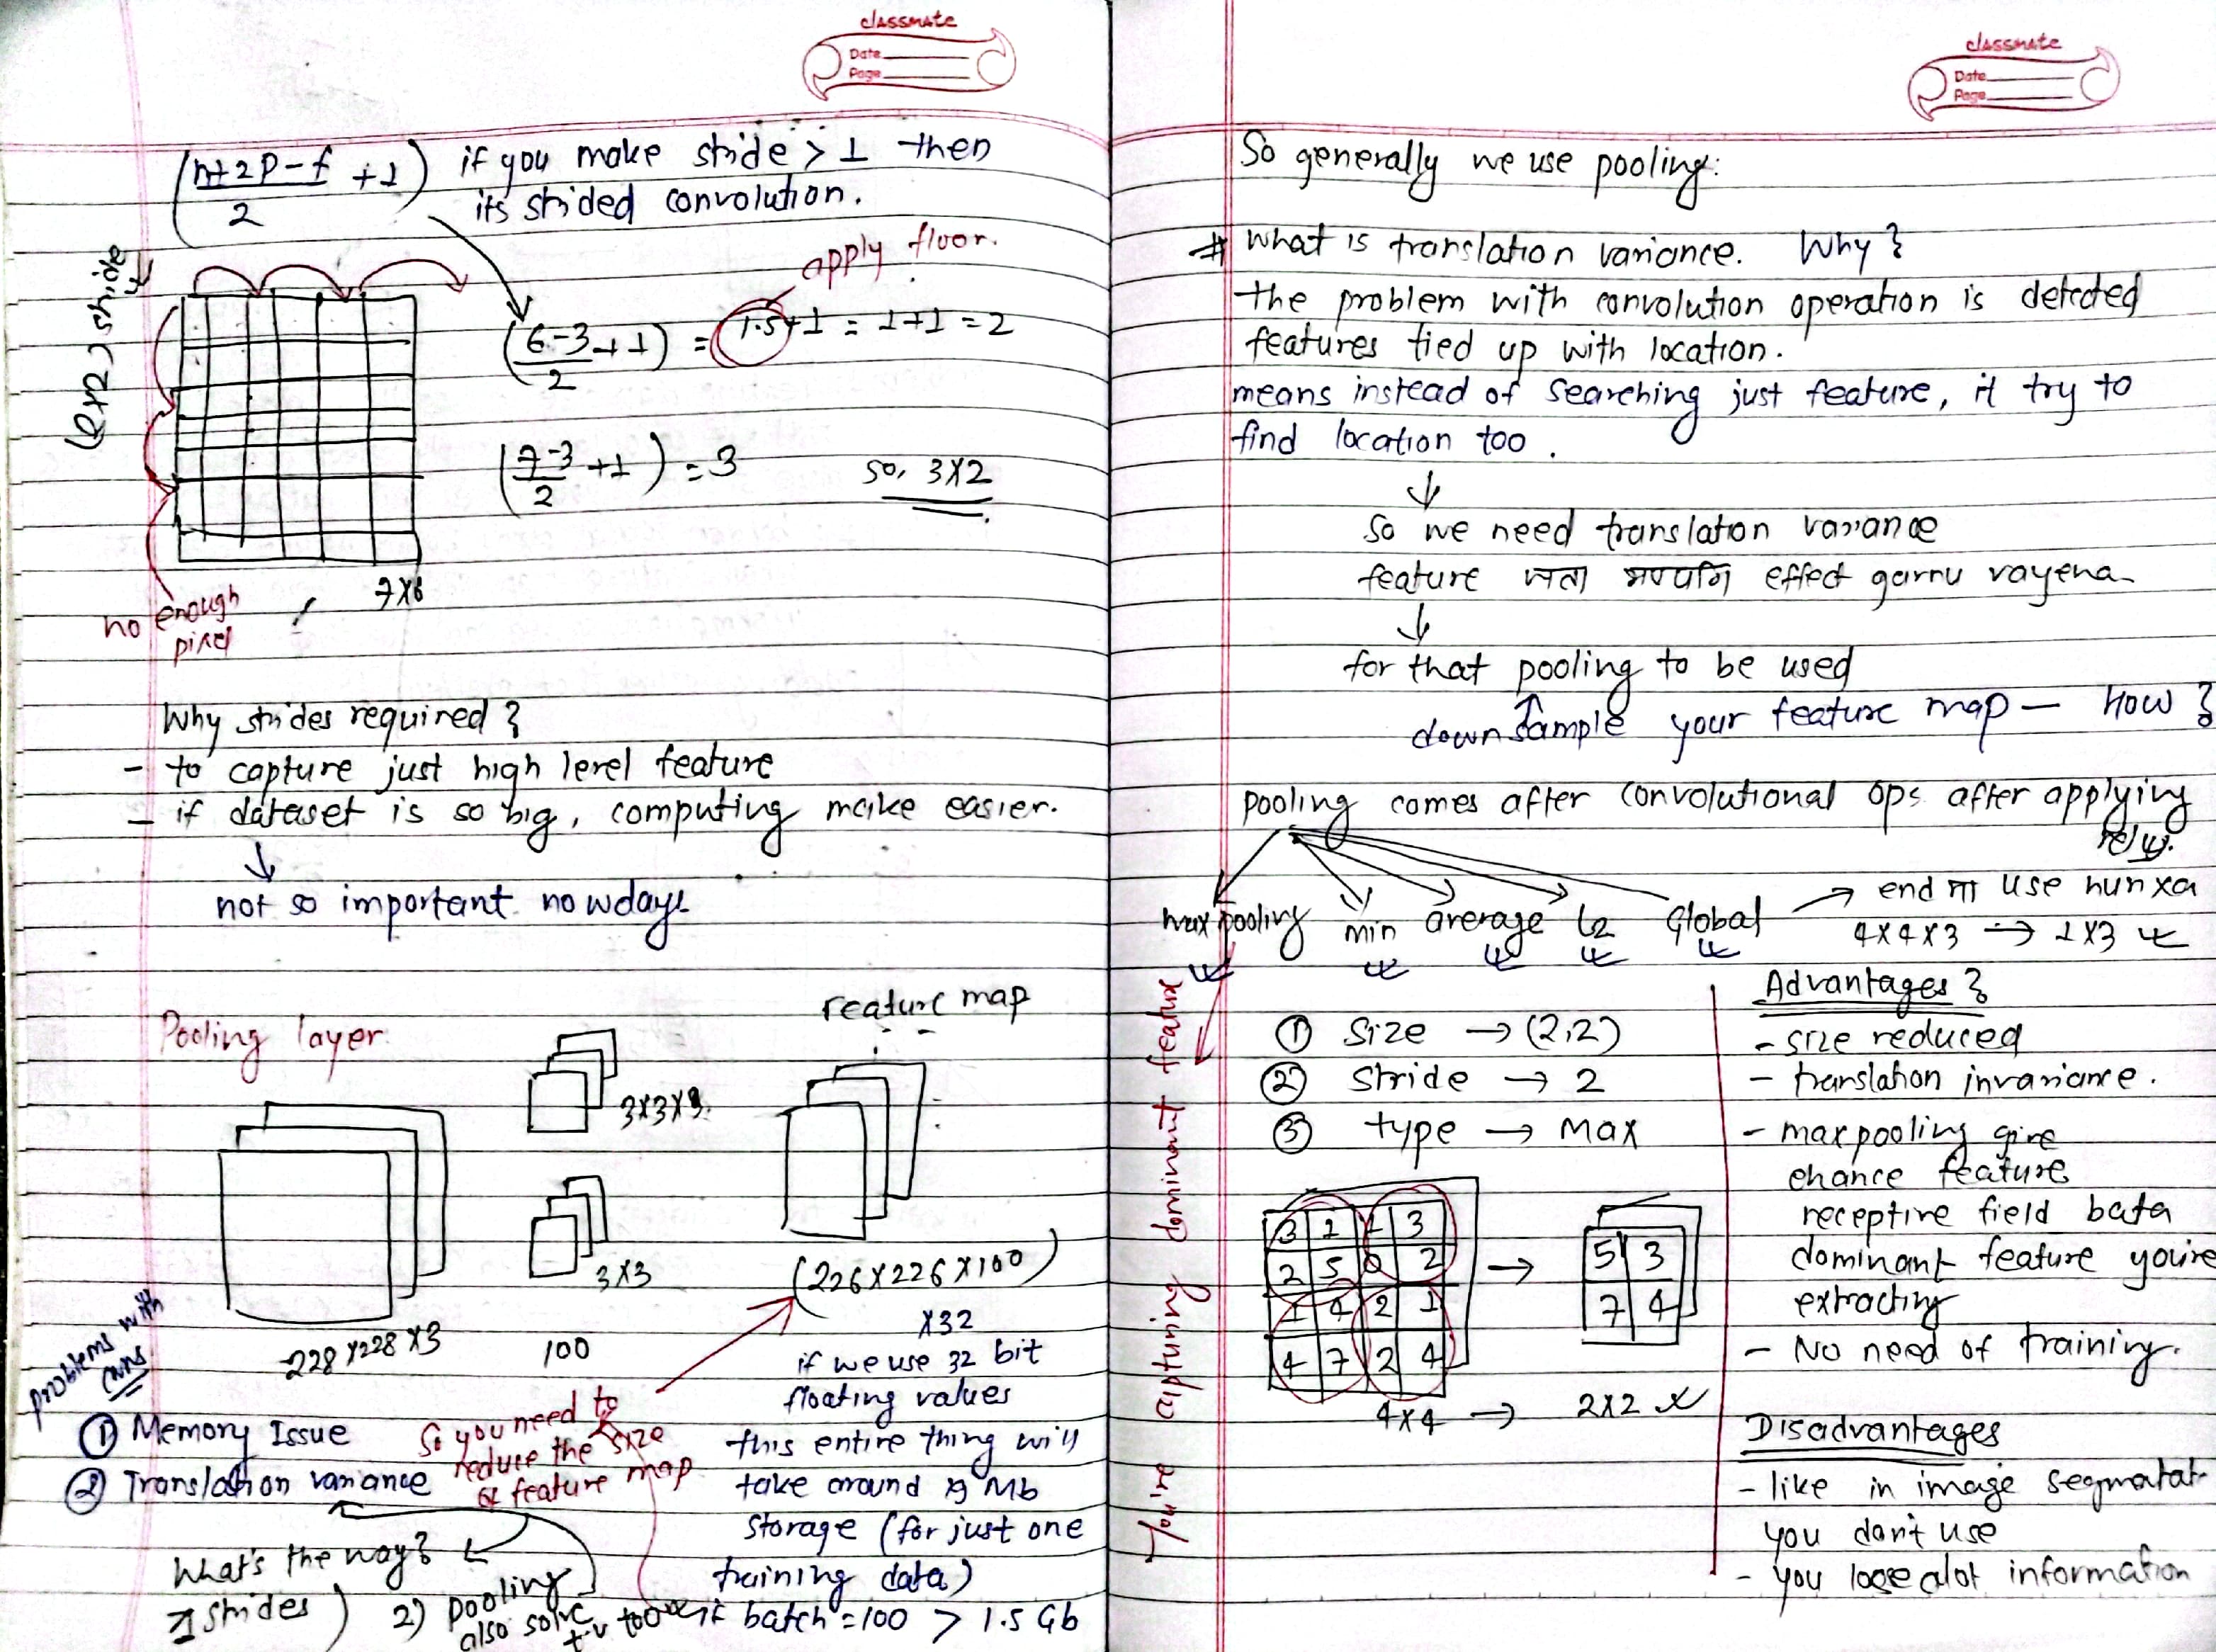 classmate
Date
Page
(n+2p-f / 2 + 1) if you make stride > 1 then
its strided convolution.
apply floor.
(6-3 / 2 + 1) = 1.5+1 = 1+1 = 2
(7-3 / 2 + 1) = 3 so, 3x2
stride
7x6
no enough
pixel
Why strides required?
- to capture just high level feature
- if dataset is so big, computing make easier.
not so important nowdays
Pooling layer.
feature map
3x3x3
3x3
228x228x3
100
(226x226x100)
x32
if we use 32 bit
floating values
this entire thing will
take around 19 Mb
storage (for just one
training data)
if batch = 100 > 1.5 Gb
problems with
CNNs
① Memory Issue
② Translation variance
So you need to
reduce the size
of feature map
What's the way?
1 strides) 2) pooling
also solve tv too
classmate
Date
Page
So generally we use pooling:
# What is translation variance. Why?
the problem with convolution operation is detected
features tied up with location.
means instead of searching just feature, it try to
find location too.
So we need translation variance
feature जता भएपनि effect garnu vayena
for that pooling to be used
down sample your feature map — How?
pooling comes after convolutional ops after applying
relu.
max pooling min average L2 Global → end मा use hunxa
4x4x3 → 1x3
You're capturing dominant feature
① Size → (2,2)
② Stride → 2
③ type → Max
3 1 1 3
2 5 0 2
1 4 2 1
4 7 2 4
5 3
7 4
4x4 → 2x2
Advantages?
- size reduced
- translation invariance.
- maxpooling give
ehance feature
receptive field bata
dominant feature you're
extracting
- No need of training.
Disadvantages
- like in image segmatat
you don't use
- you loose alot information